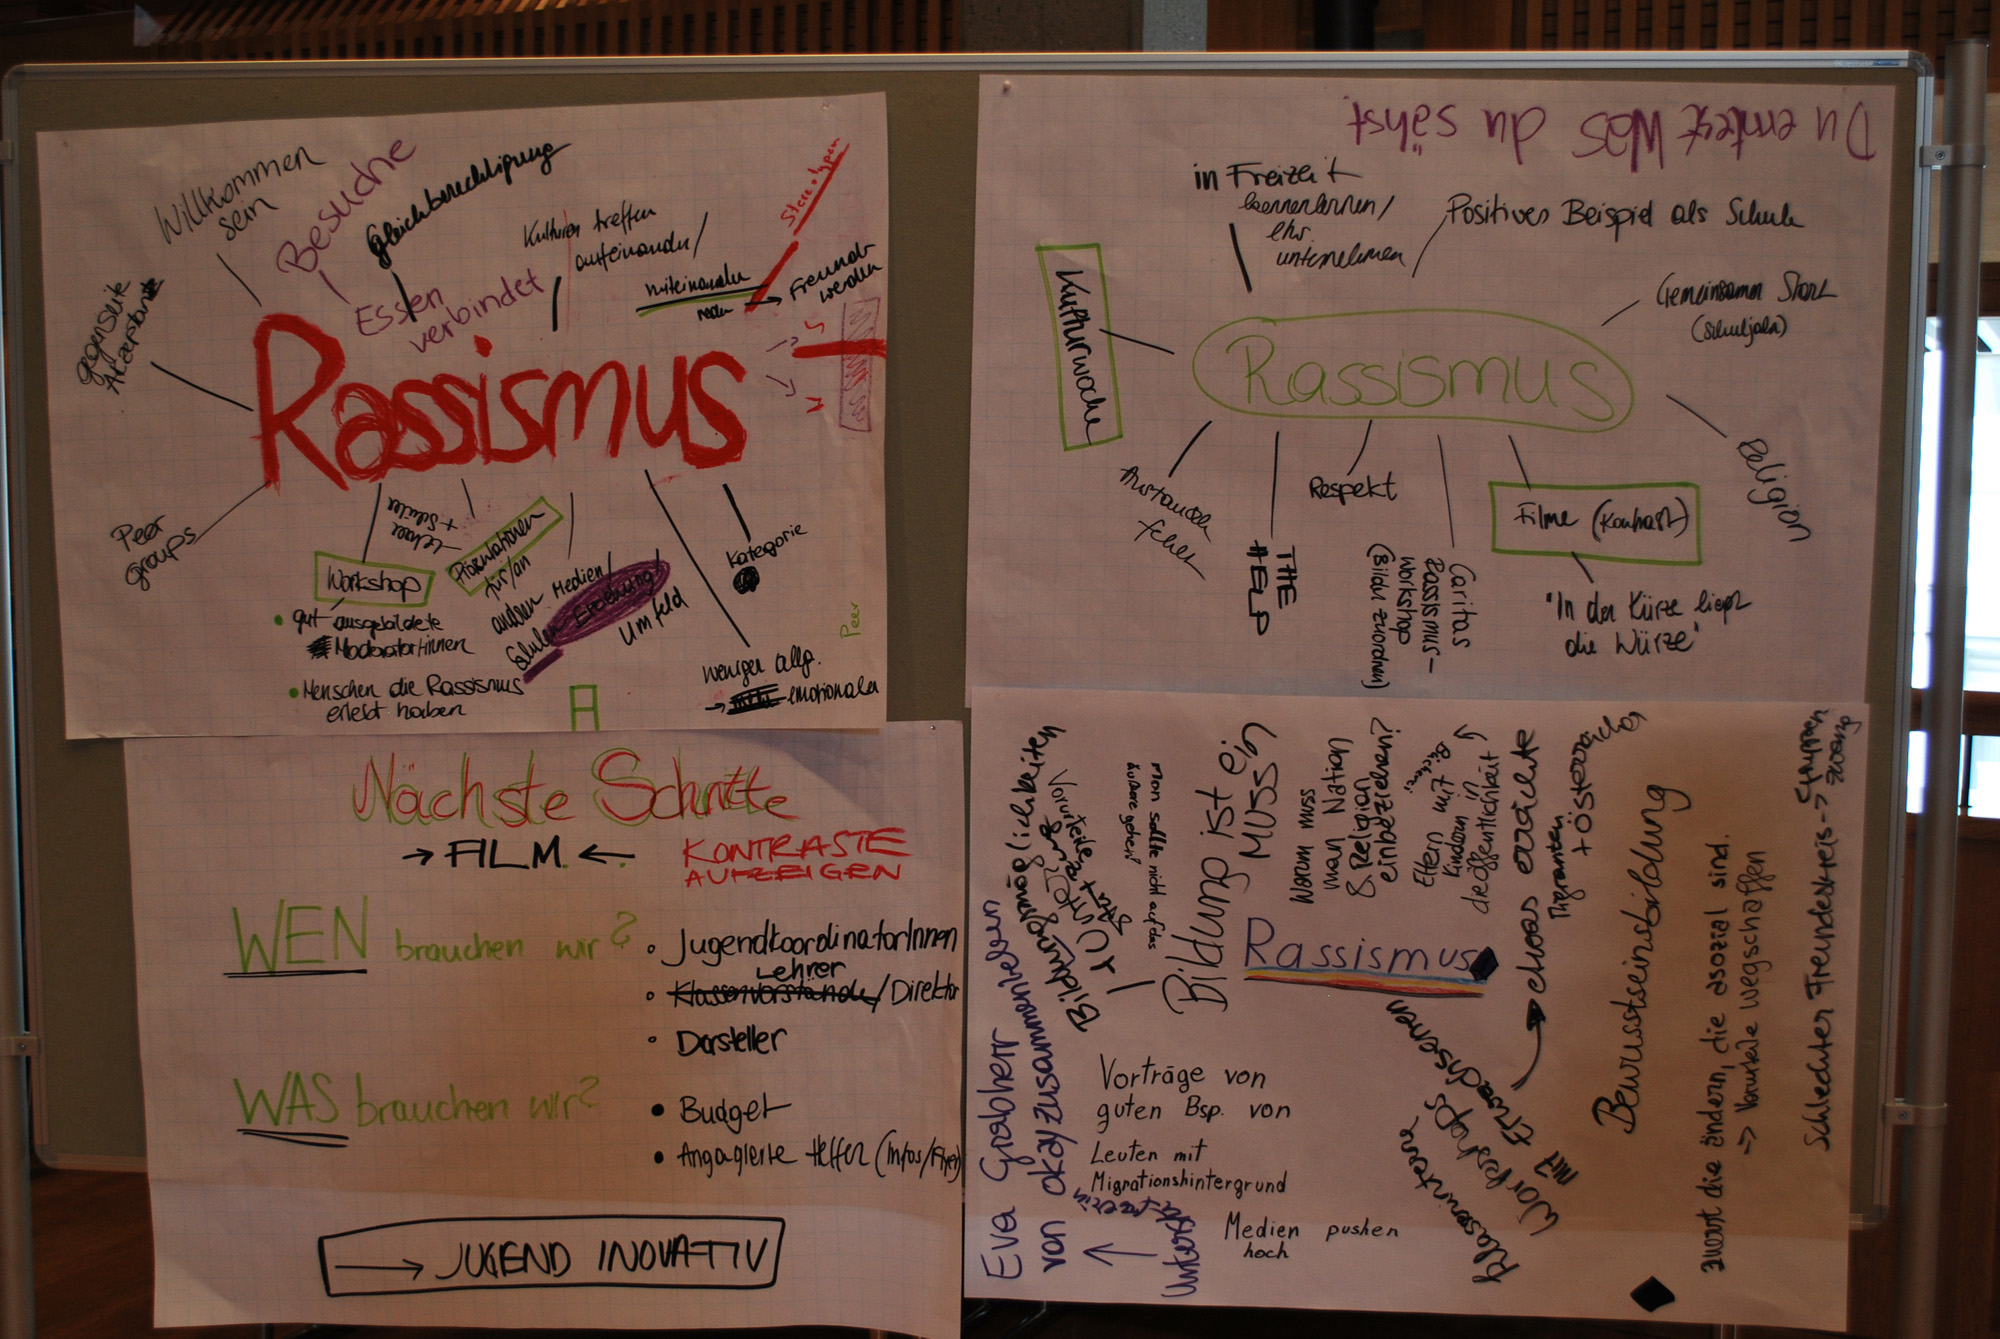 Willkommen
sein
Besuche
Gleichberechtigung
Essen
verbindet
Kulturen treffen
aufeinander/
miteinander
reden
Freunde
werden
Rassismus
Peer
groups
Lehrer
+ Schüler
Workshop
• gut ausgebildete
Moderator+innen
• Menschen die Rassismus
erlebt haben
Präsentationen
für/an
anderen
Schulen
Medien/
Erziehung/
Umfeld
Kategorie
weniger allg.
→ emotionaler
Peer
A
Du erntest Was du sähst
in Freizeit
kennenlernen/
etw.
unternehmen
Positives Beispiel als Schule
Kulturwoche
Gemeinsamen Start
(Schuljahr)
Rassismus
Religion
Austausch
THE
HELP
Respekt
Caritas
Rassismus-
workshop
(Bilder zuordnen)
Filme (Kontrast)
"In der Kürze liegt
die Würze"
Nächste Schritte
→ FILM ←
KONTRASTE
AUFZEIGEN
WEN brauchen wir?
• JugendkoordinatorInnen
Lehrer
• Klassenvorstände/Direktor
• Darsteller
WAS brauchen wir?
• Budget
• Angagierte Helfer (Infos/Flyer)
→ JUGEND INOVATIV
Eva Grabherr
von okay zusammenleben
Bildungsmöglichkeiten
Man sollte nicht auf das
äußere gehen!
Bildung ist ein
MUSS
Warum muss
man Nation
& Religion
einbeziehen?
Eltern mit
Kindern in
die öffentlichkeit
Rassismus
Migranten
+ Österreicher
Bewusstseinsbildung
zuerst die ändern, die asozial sind.
=> Vorurteile wegschaffen
Schlechter Freundeskreis -> Gruppen
zwang
Vorträge von
guten Bsp. von
Leuten mit
Migrationshintergrund
Medien pushen
hoch
Workshops
mit Erwachsenen